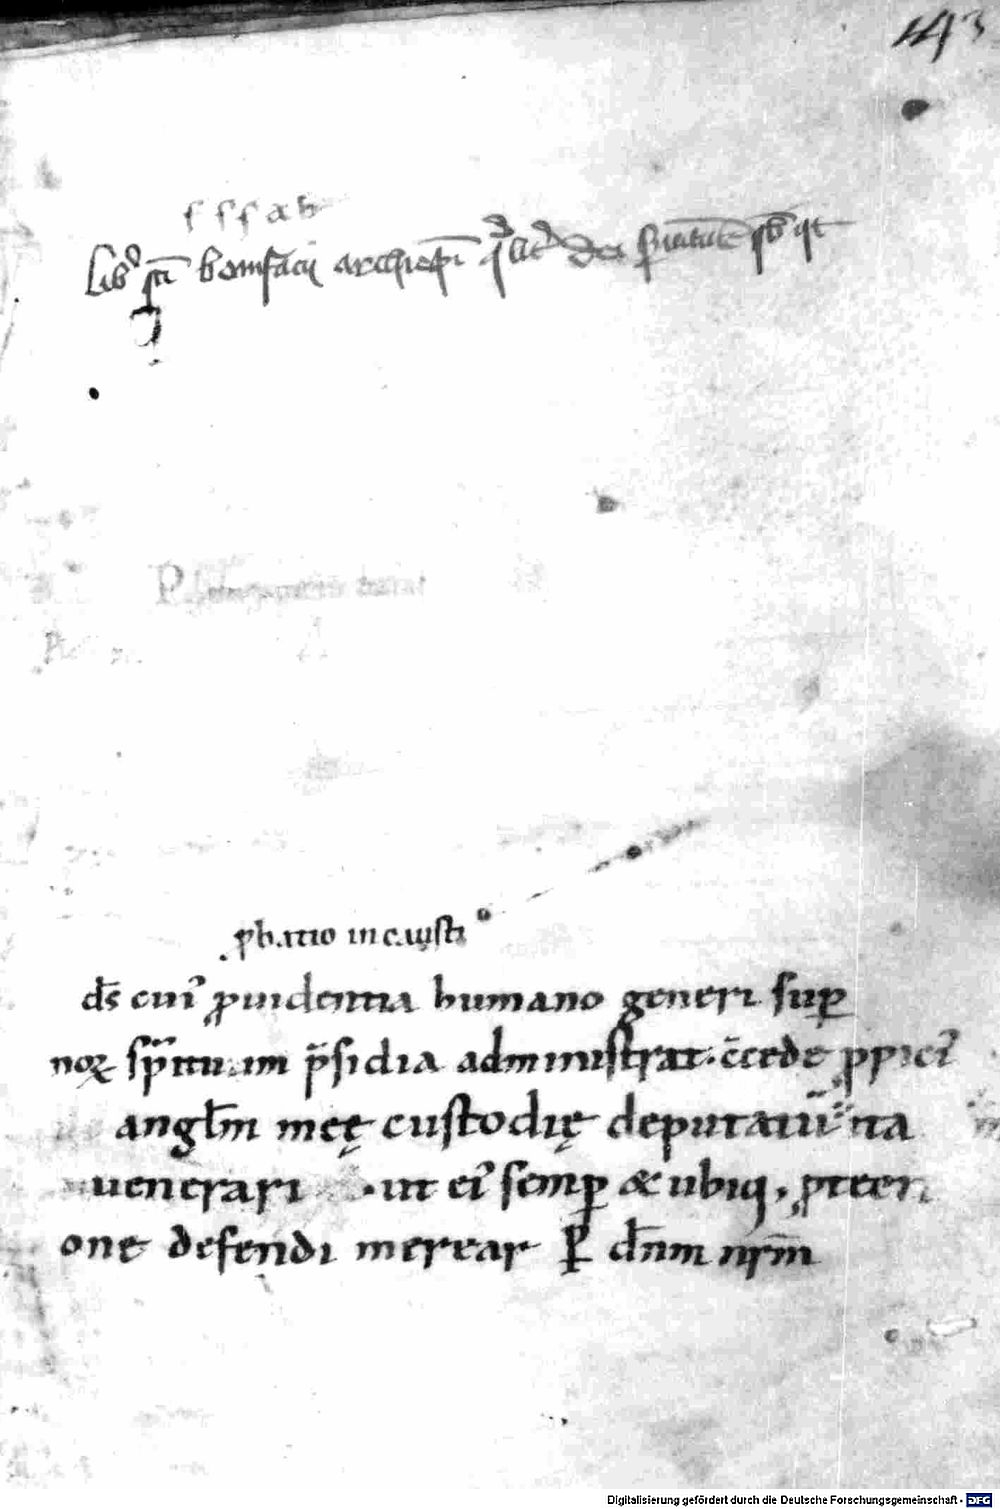 143
f f f a b
libꝰ sci bonifacii archiepi qlitꝰ dei
ꝓbatio incausti
ds̄ cuiꝰ ꝓuidentia humano generi suꝑ
noꝝ sp̄ituum p̄sidia administrat. c̄cede ꝓpiciꝰ
angl̄m meę custodię deputatū ita
uenerari . ut eiꝰ semꝑ & ubiq, ꝓtecti
one defendi merear ꝑ dn̄m nr̄m
Digitalisierung gefördert durch die Deutsche Forschungsgemeinschaft - DFG